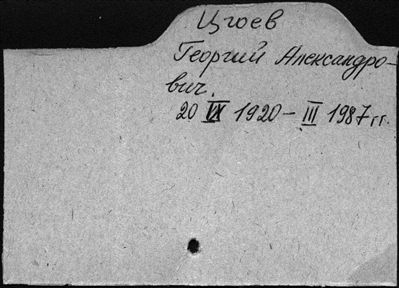 Цгоев
Георгий Александро-
вич.
20 IX 1920 - III 1987 гг.